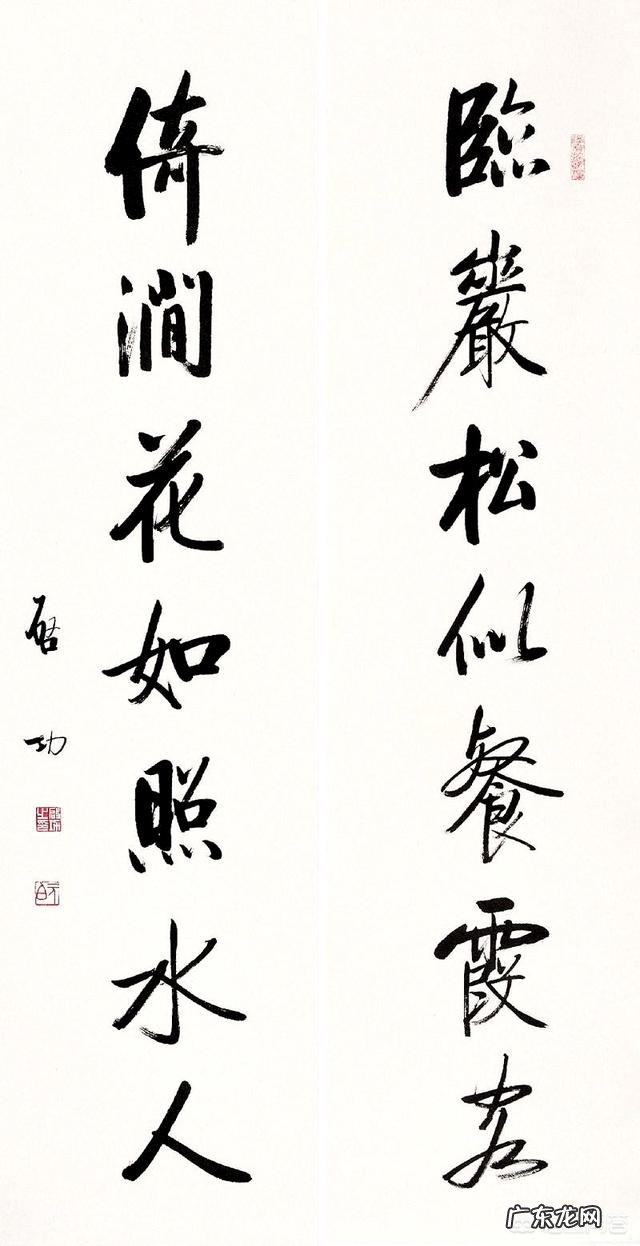 臨巖松似餐霞客
倚澗花如照水人
启功
广东龙网